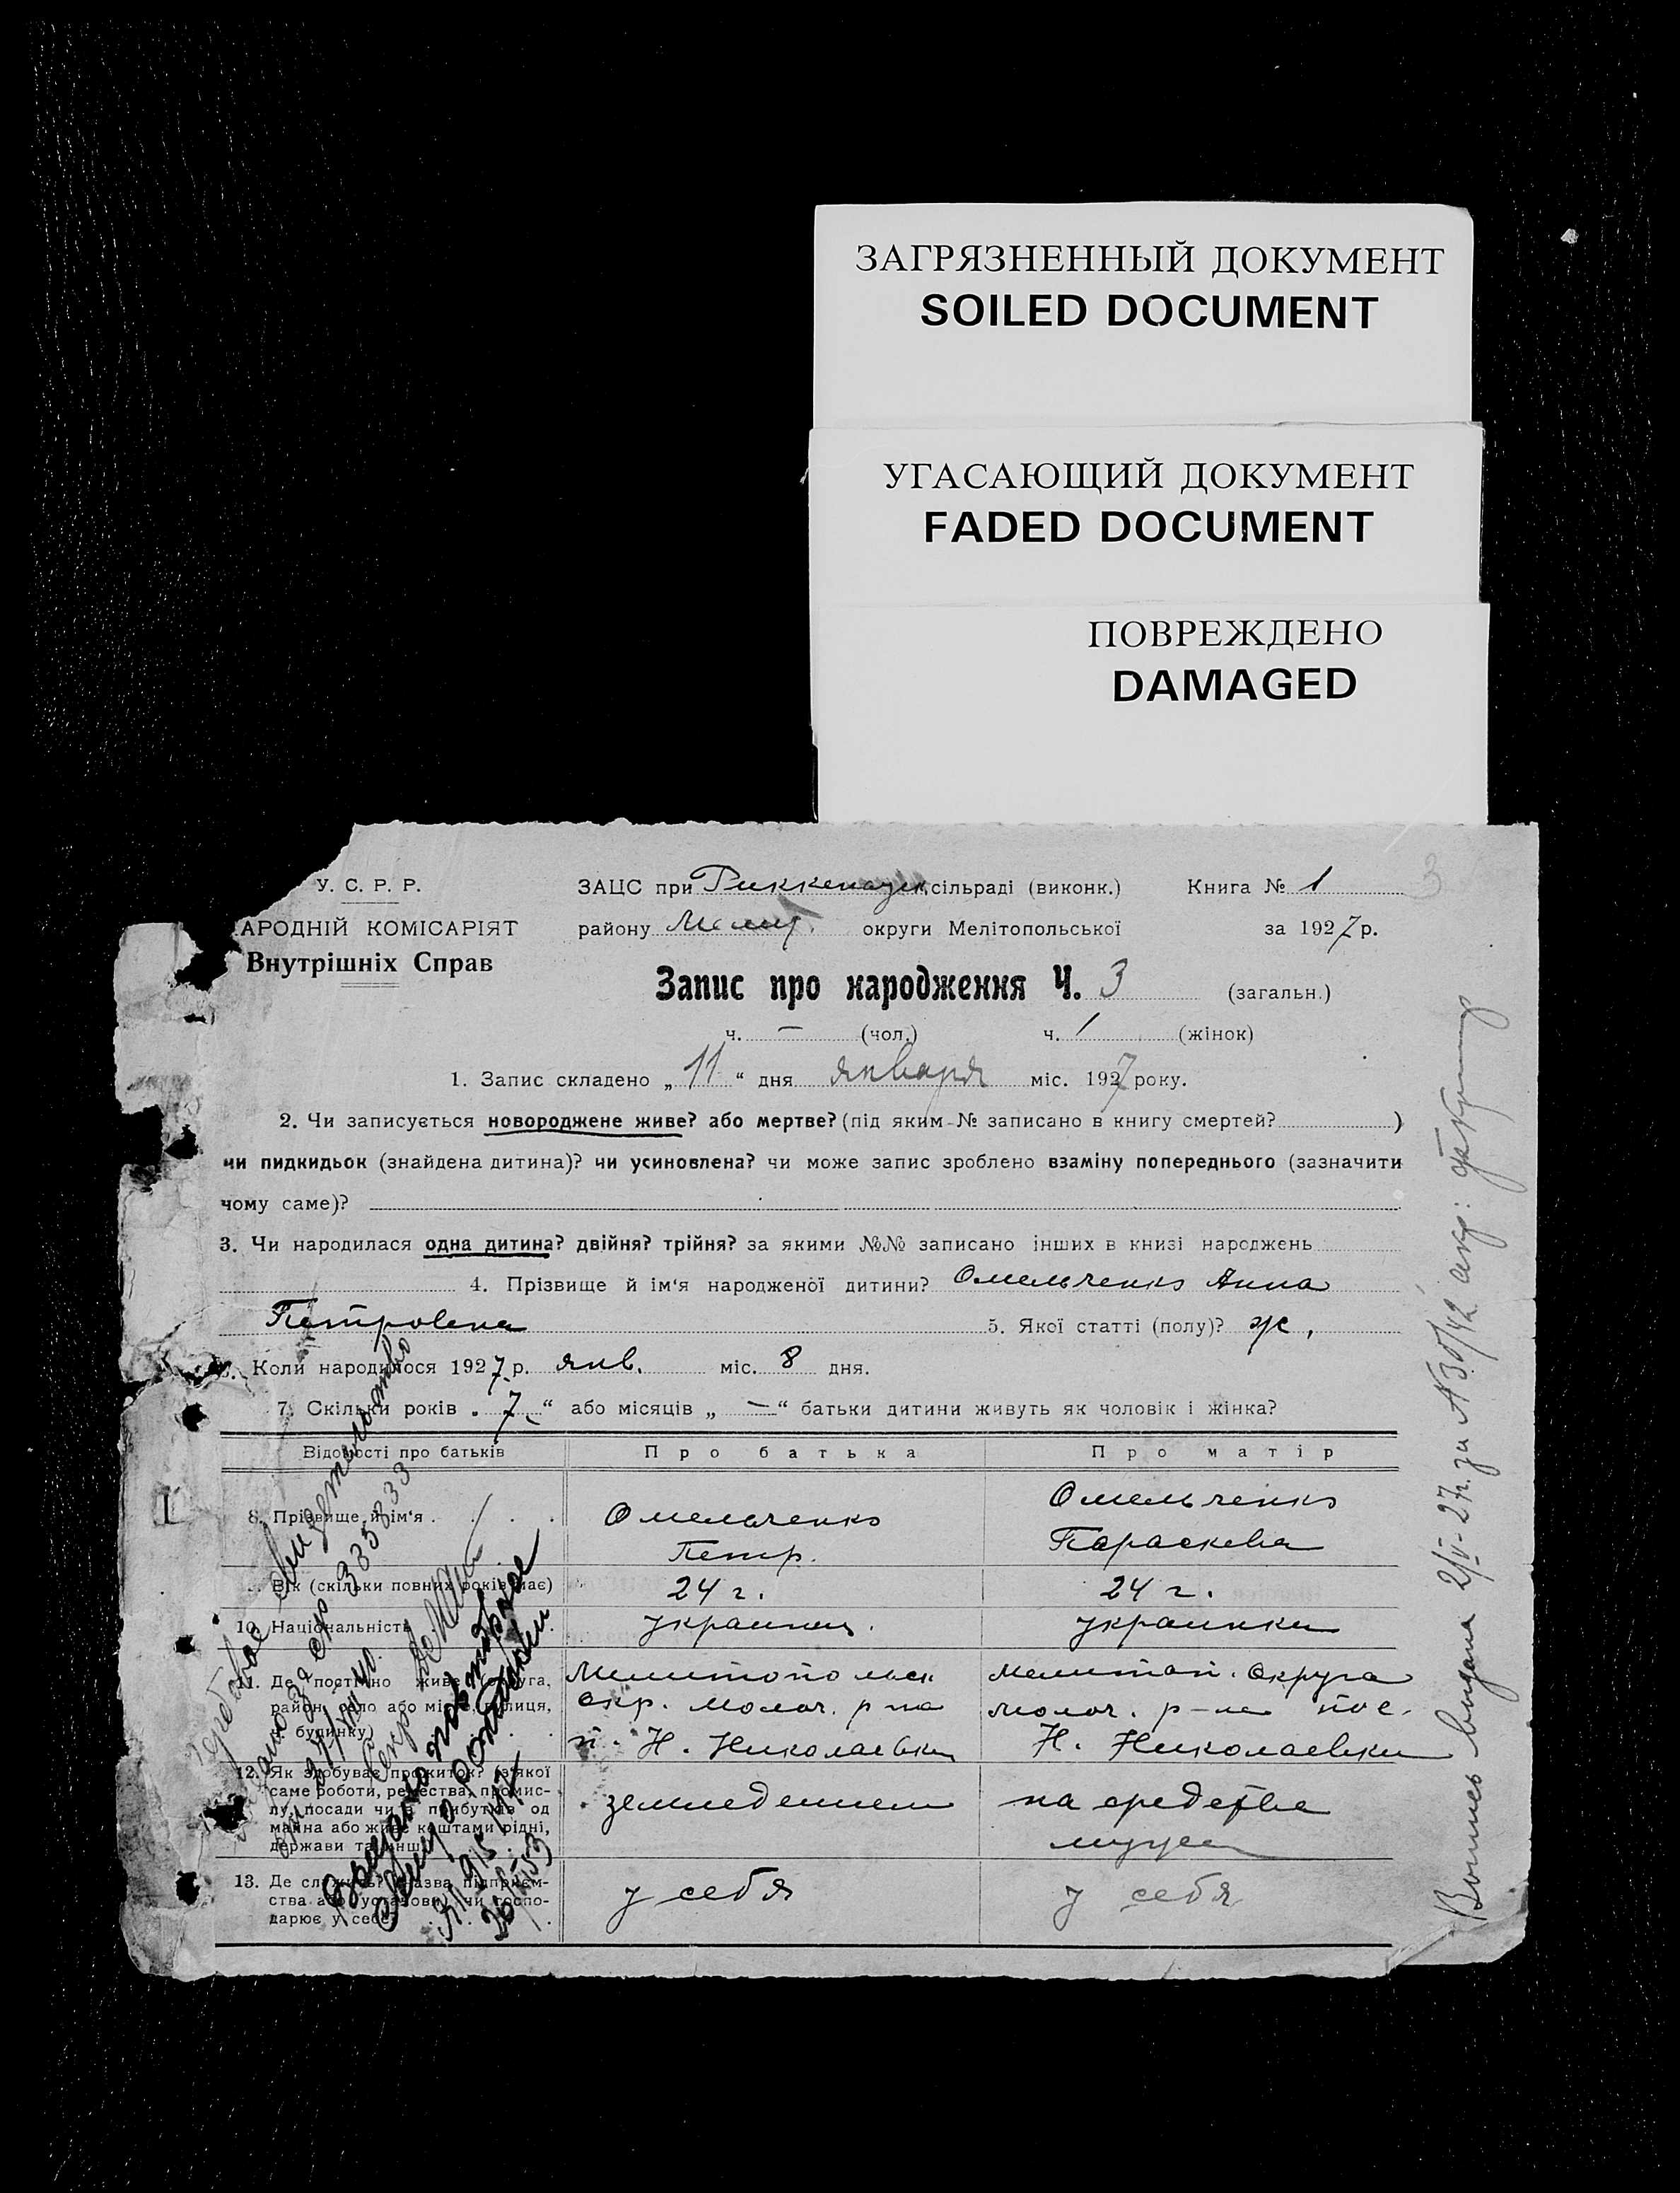 ЗАГРЯЗНЕННЫЙ ДОКУМЕНТ
SOILED DOCUMENT
УГАСАЮЩИЙ ДОКУМЕНТ
FADED DOCUMENT
ПОВРЕЖДЕНО
DAMAGED
3
У. С. Р. Р.
АРОДНІЙ КОМІСАРІЯТ
Внутрішніх Справ
ЗАЦС при сільраді (виконк.) Книга № 1
району округи Мелітопольської за 1927 р.
Запис про народження Ч. 3 (загальн.)
ч. — (чол.) ч. 1 (жінок)
1. Запис складено „ 11 “ дня января міс. 1927 року.
2. Чи записується новороджене живе? або мертве? (під яким № записано в книгу смертей? )
чи пидкидьок (знайдена дитина)? чи усиновлена? чи може запис зроблено взаміну попереднього (зазначити
чому саме)?
3. Чи народилася одна дитина? двійня? трійня? за якими №№ записано інших в книзі народжень
4. Прізвище й ім‘я народженої дитини? Омельченко Анна
Петровна 5. Якої статті (полу)? ж.
Коли народилося 1927 р. янв. міс. 8 дня.
7. Скільки років „ 7 “ або місяців „ — “ батьки дитини живуть як чоловік і жінка?
Відомості про батьків Про батька Про матір
8. Прізвище й ім‘я Омельченко Петр. Омельченко Параскева
Вік (скільки повних років має) 24 г. 24 г.
10. Національність украинец. украинка
11. Де постійно живе (округа,
район, село або місто, вулиця,
№ будинку)
Мелитопольск
окр. Молоч. р на
п. Н. Николаевка
мелитоп. округа
молоч. р-на пос.
Н. Николаевка
12. Як здобуває прожиток? (з якої
саме роботи, ремества, промис-
лу, посади чи з прибутків од
майна або живе коштами рідні,
держави та инш.)
земледением
на средства
мужа
13. Де служить? (назва підприєм-
ства або установи, чи госпо-
дарює у себе)
у себя у себя
свидетельство
385833
Выпись выдана